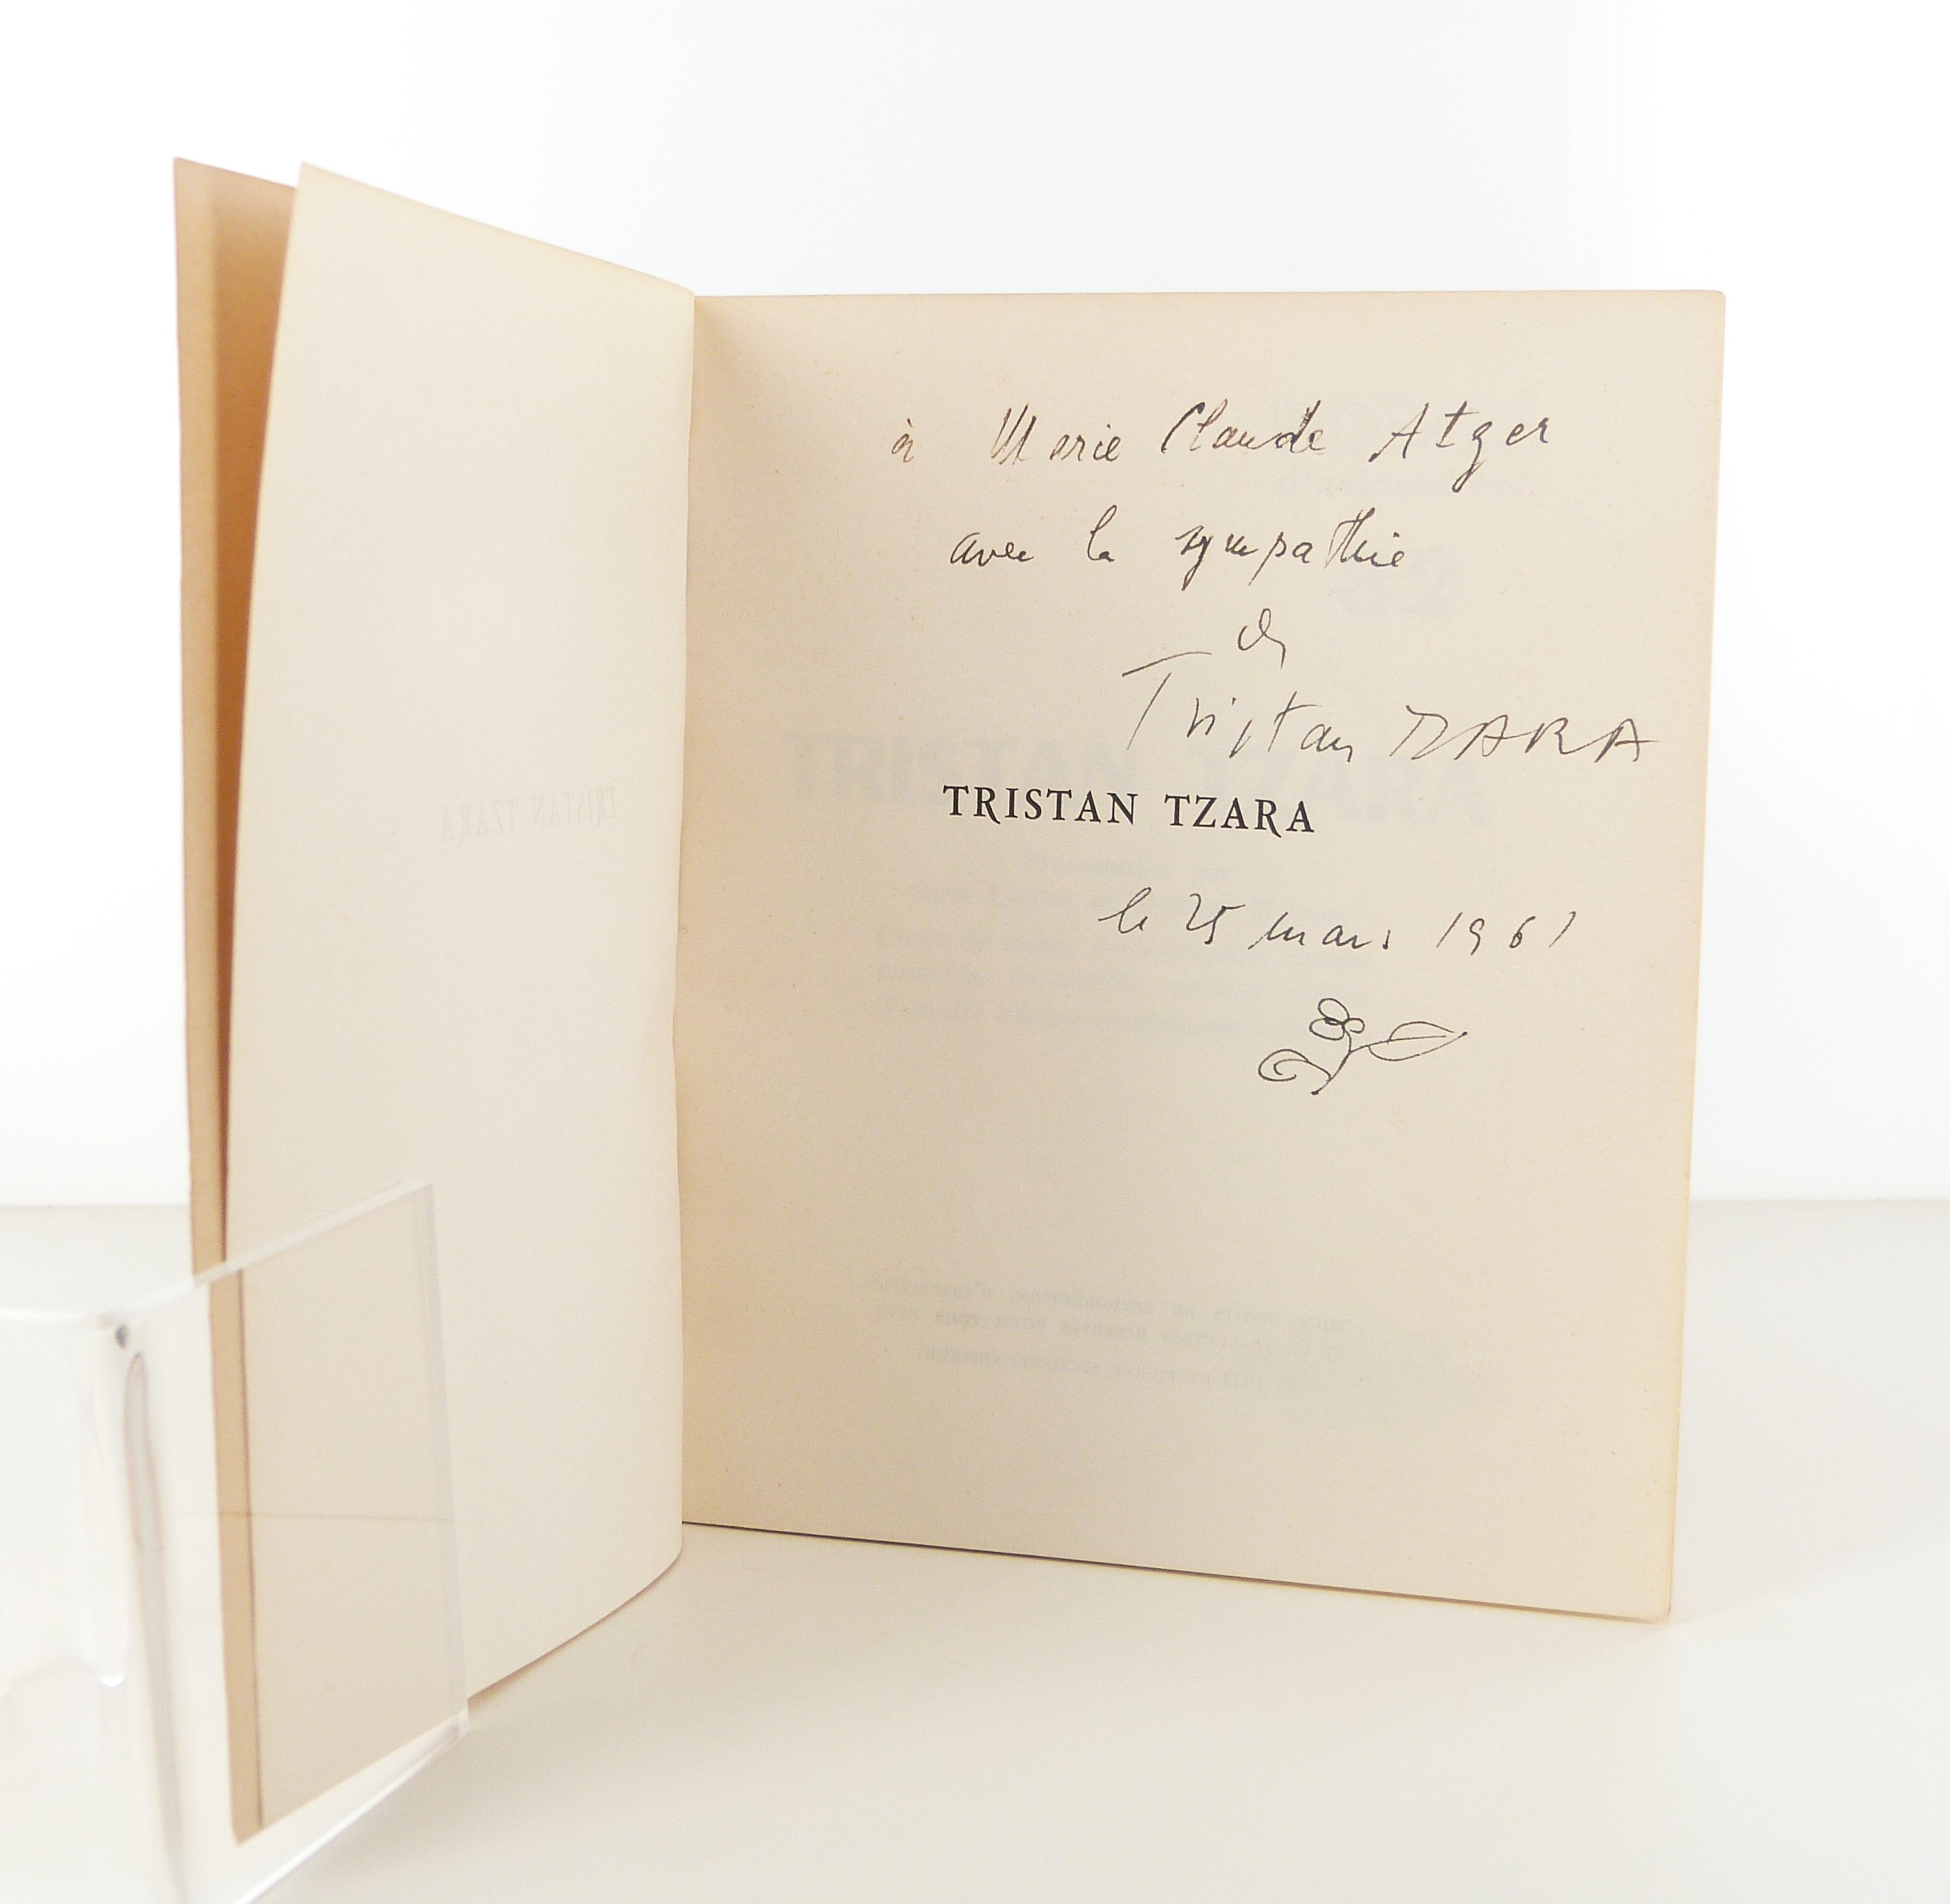 à Marie Claude Atger
avec la sympathie
de
Tristan TZARA
TRISTAN TZARA
le 25 mars 1961
TRISTAN TZARA
TRISTAN TZARA